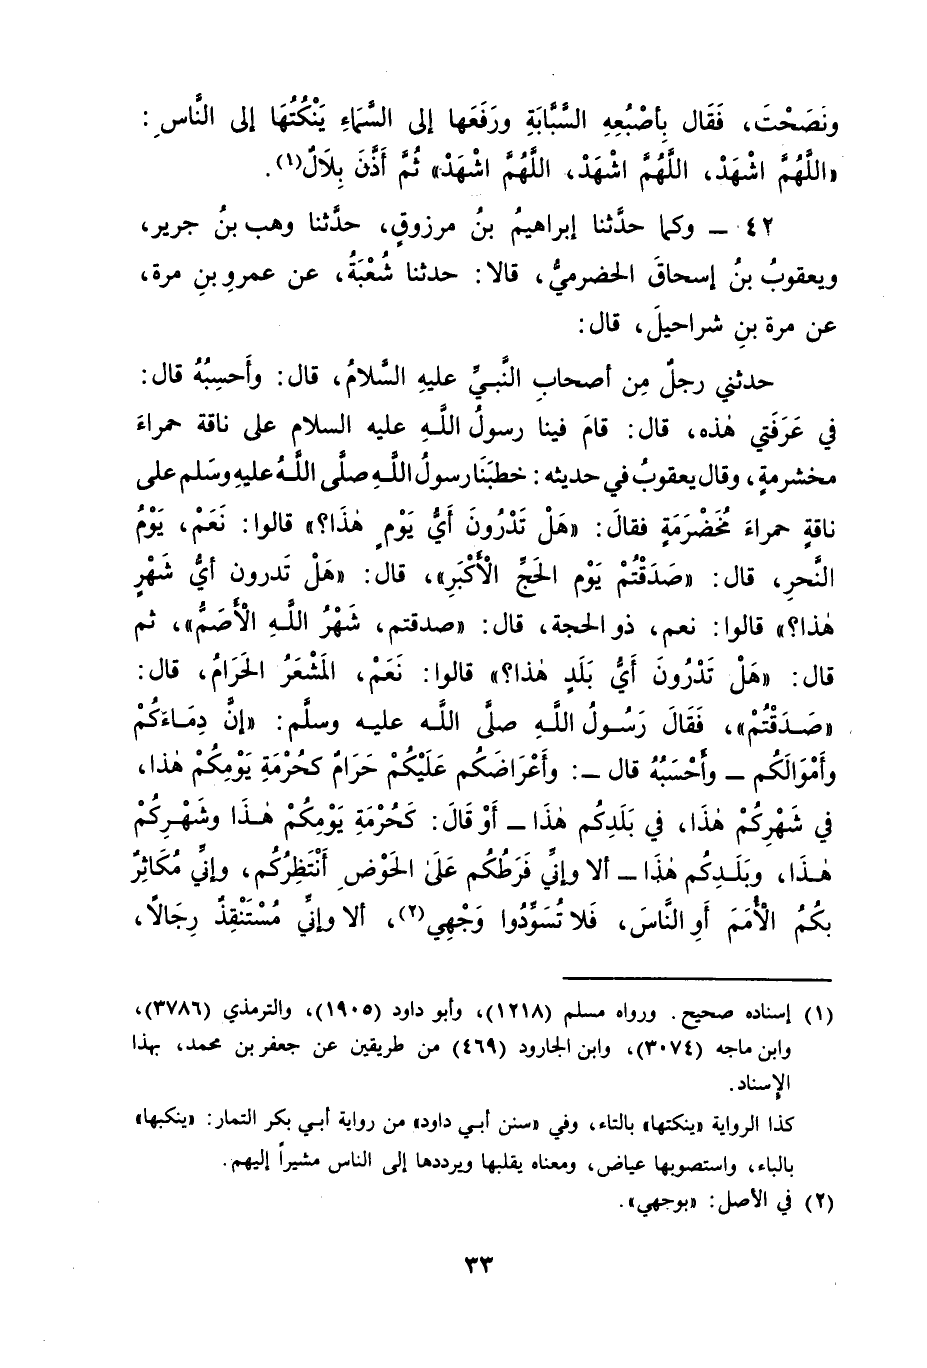 ونَصَحْتَ، فَقَال بِأَصْبُعِهِ السَّبَّابَةِ ورَفَعَها إلى السَّمَاءِ يَنْكُتُهَا إلى النَّاسِ:
«اللَّهُمَّ اشْهَدْ، اللَّهُمَّ اشْهَدْ، اللَّهُمَّ اشْهَدْ» ثُمَّ أَذَّنَ بِلَالٌ(١).
٤٢ ــ وكما حدَّثنا إبراهيمُ بنُ مرزوقٍ، حدَّثنا وهب بنُ جرير،
ويعقوبُ بنُ إسحاقَ الحضرميُّ، قالا: حدثنا شُعْبَةُ، عن عمرِو بنِ مرة،
عن مرة بنِ شراحيلَ، قال:
حدثني رجلٌ مِن أصحابِ النَّبيِّ عليهِ السَّلامُ، قال: وأَحسِبُهُ قال:
في غَرَفَتي هٰذه، قال: قامَ فينا رسولُ اللَّهِ عليه السلام على ناقة حمراءَ
مخشرمةٍ، وقال يعقوبُ في حديثه: خطبَنَا رسولُ اللَّهِ صلَّى اللَّهُ عليهِ وسَلم على
ناقةٍ حمراءَ مُخَضْرَمَةٍ فقالَ: «هَلْ تَدْرُونَ أَيُّ يَوْمٍ هٰذَا؟» قالوا: نَعَمْ، يَوْمُ
النَّحرِ، قال: «صَدَقْتُمْ يَوْم الحَجِّ الْأَكْبَرِ»، قال: «هَلْ تَدرون أيُّ شَهْرٍ
هٰذا؟» قالوا: نعم، ذو الحجة، قال: «صدقتم، شَهْرُ اللَّهِ الْأَصَمُّ»، ثم
قال: «هَلْ تَدْرُونَ أَيُّ بَلَدٍ هٰذا؟» قالوا: نَعَمْ، المَشْعَرُ الحَرَامُ، قال:
«صَدَقْتُمْ»، فَقَالَ رَسُولُ اللَّهِ صلَّى اللَّه عليه وسلَّم: «إنَّ دِمَاءَكُمْ
وأَمْوَالَكُم ــ وأَحْسَبُهُ قال ــ: وأَعْرَاضَكُم عَلَيْكُمْ حَرَامٌ كحُرْمَةِ يَوْمِكُمْ هٰذا،
في شَهْرِكُمْ هٰذَا، في بَلَدِكُم هٰذَا ــ أَوْ قَالَ: كَحُرْمَةِ يَوْمِكُمْ هٰذَا وشَهْرِكُمْ
هٰذَا، وبَلَدِكُم هٰذَا ــ ألا وإنِّي فَرَطُكُم عَلَىٰ الحَوْضِ أَنْتَظِرُكُم، وإنِّي مُكَاثِرٌ
بِكُمُ الْأُمَمَ أَوِ النَّاسَ، فَلا تُسَوِّدُوا وَجْهِي(٢)، ألا وإنِّي مُسْتَنْقِذٌ رِجَالًا،
(١) إسناده صحيح. ورواه مسلم (١٢١٨)، وأبو داود (١٩٠٥)، والترمذي (٣٧٨٦)،
وابن ماجه (٣٠٧٤)، وابن الجارود (٤٦٩) من طريقين عن جعفر بن محمد، بهذا
الإسناد.
كذا الرواية «ينكتها» بالتاء، وفي «سنن أبي داود» من رواية أبي بكر التمار: «ينكبها»
بالباء، واستصوبها عياض، ومعناه يقلبها ويرددها إلى الناس مشيراً إليهم.
(٢) في الأصل: «بوجهي».
٣٣